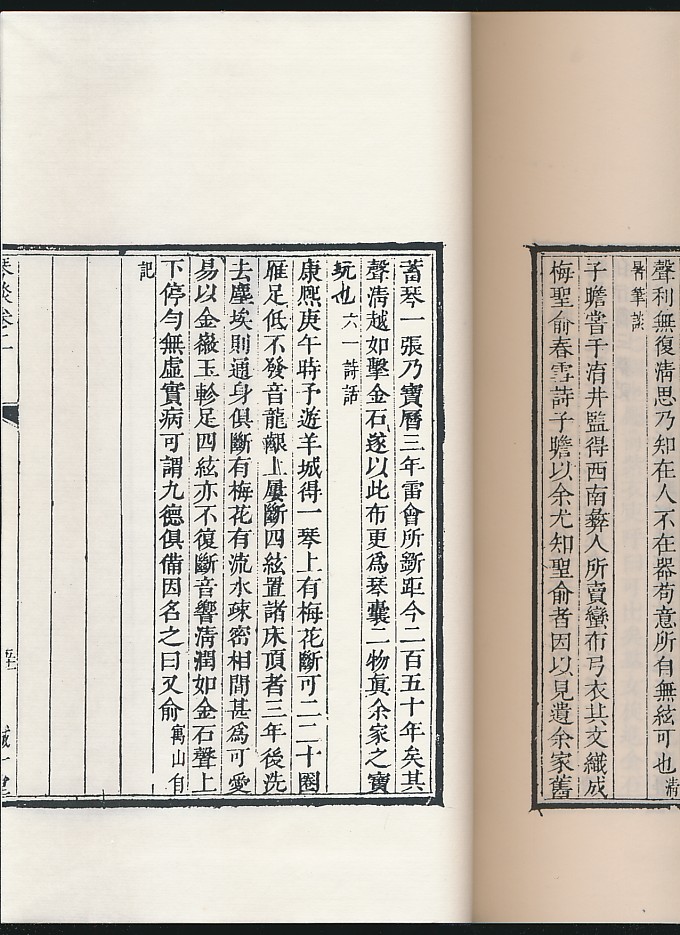 聲利無復淸思乃知在人不在器苟意所自無絃可也淸
暑筆談
子瞻嘗于淯井監得西南彝人所賣蠻布弓衣其文織成
梅聖俞春雪詩子瞻以余尤知聖俞者因以見遺余家舊
蓄琴一張乃寶曆三年雷會所斲距今二百五十年矣其
聲淸越如擊金石遂以此布更爲琴囊二物眞余家之寶
玩也六一詩話
康熙庚午時予遊羊城得一琴上有梅花斷可二三十圈
雁足低不發音龍齦上屢斷四絃置諸床頂者三年後洗
去塵埃則通身俱斷有梅花有流水疎密相間甚爲可愛
易以金徽玉軫足四絃亦不復斷音響淸潤如金石聲上
下停勻無虛實病可謂九德俱備因名之曰又俞寓山自
記
琴談卷二